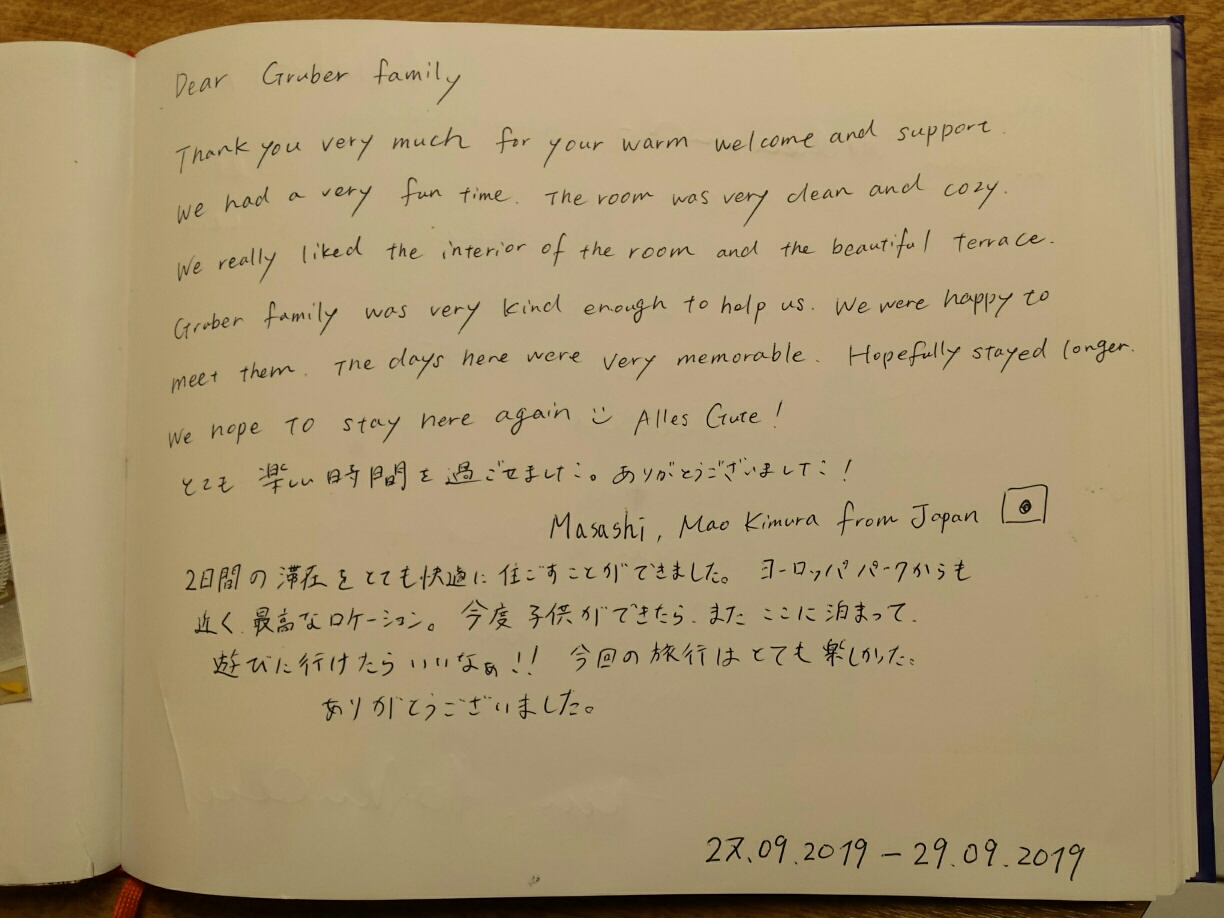 Dear Gruber family
Thank you very much for your warm welcome and support.
We had a very fun time. The room was very clean and cozy.
We really liked the interior of the room and the beautiful terrace.
Gruber family was very kind enough to help us. We were happy to
meet them. The days here were very memorable. Hopefully stayed longer.
We hope to stay here again Alles Gute!
とても 楽しい時間を過ごせました。ありがとうございました!
Masashi, Mao Kimura from Japan
2日間の滞在をとても快適に 住ごすことができました。 ヨーロッパパークからも
近く、最高なロケーション。 今度子供ができたら、また ここに泊まって、
遊びに行けたらいいなぁ!! 今回の旅行はとても楽しかった。
ありがとうございました。
27.09.2019 – 29.09.2019